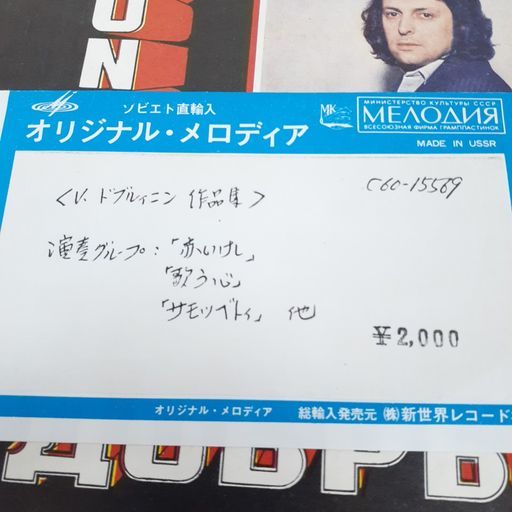 ON
ソビエト直輸入
オリジナル・メロディア
МК
МИНИСТЕРСТВО КУЛЬТУРЫ СССР
МЕЛОДИЯ
ВСЕСОЮЗНАЯ ФИРМА ГРАМПЛАСТИНОК
MADE IN USSR
<V. ドブルィニン 作品集>
C60-15569
演奏グループ:「赤いけし」
「歌う心」
「サモツベトィ」 他
¥2,000
オリジナル・メロディア
総輸入発売元 (株)新世界レコード
ДОБРЫ